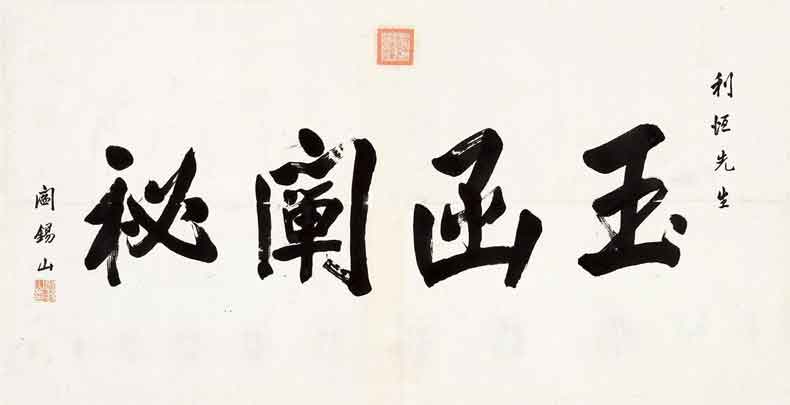 利恆先生
玉函闡秘
閻錫山